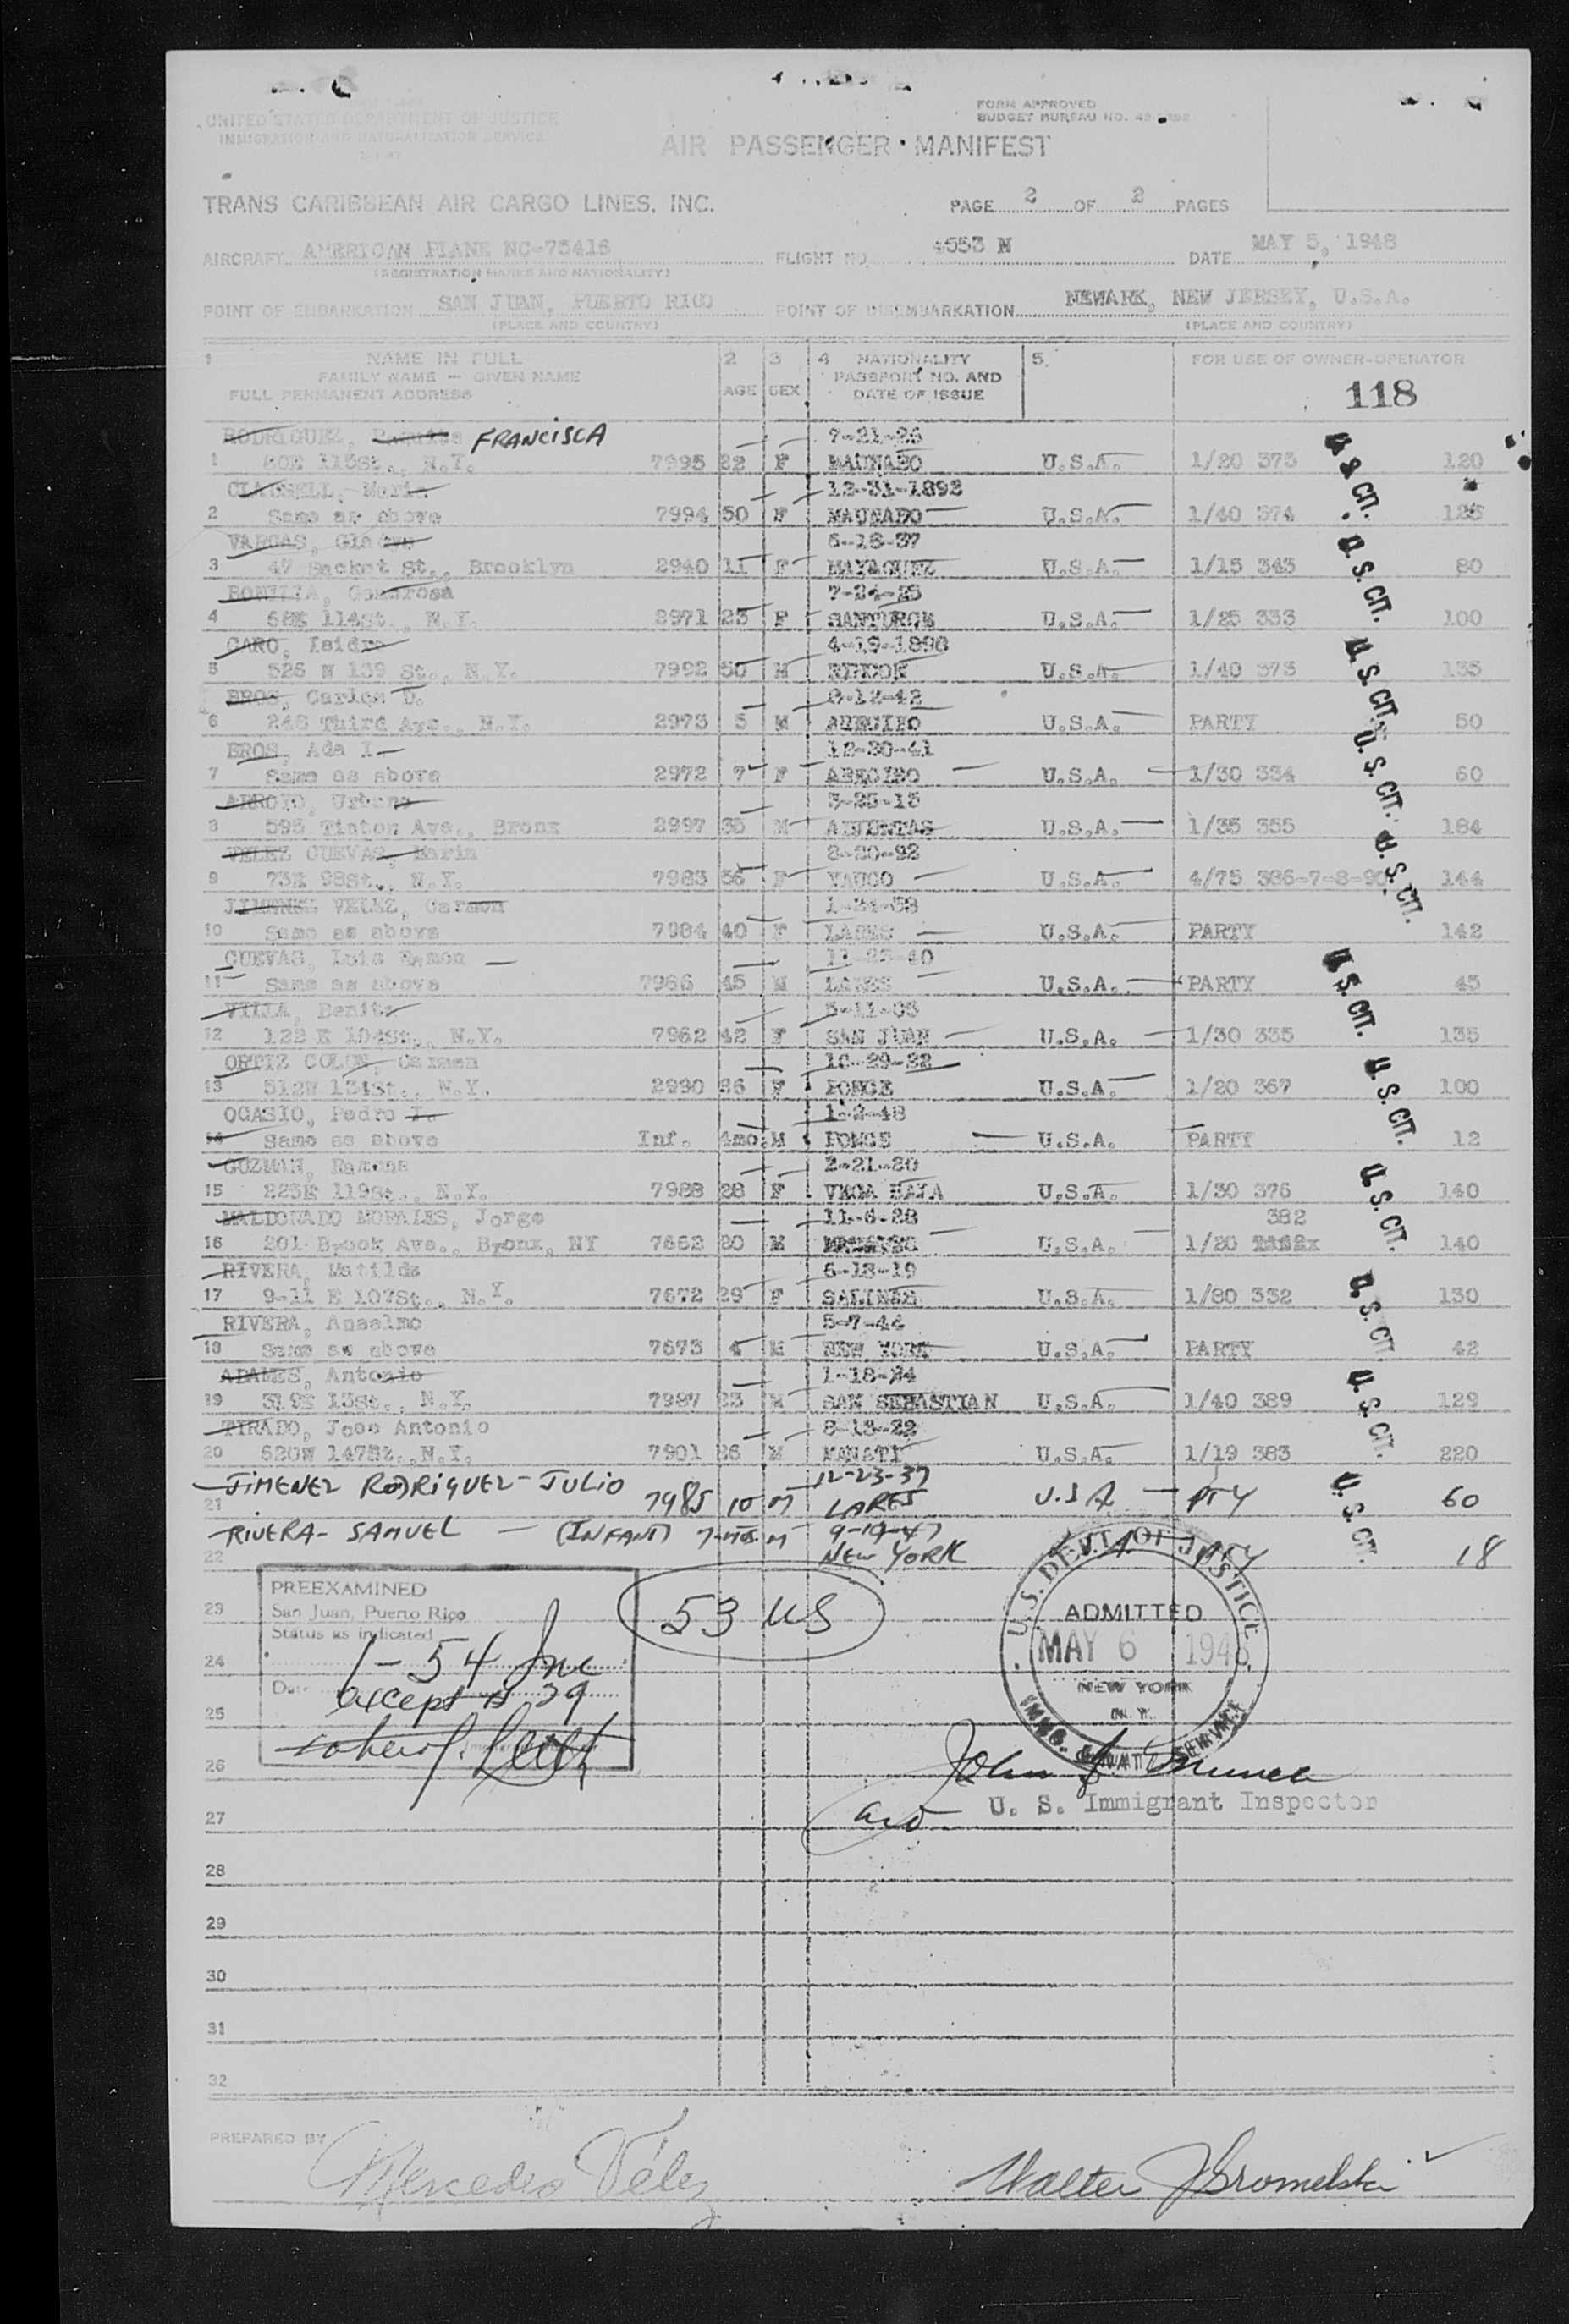 UNITED STATES DEPARTMENT OF JUSTICE
IMMIGRATION AND NATURALIZATION SERVICE
FORM APPROVED
BUDGET BUREAU NO. 43
AIR PASSENGER MANIFEST
TRANS CARIBBEAN AIR CARGO LINES, INC.
PAGE 2 OF 2 PAGES
AIRCRAFT AMERICAN PLANE NC-75416 FLIGHT NO. 4553 N DATE MAY 5, 1948
(REGISTRATION MARKS AND NATIONALITY)
POINT OF EMBARKATION SAN JUAN, PUERTO RICO POINT OF DISEMBARKATION NEWARK, NEW JERSEY, U.S.A.
(PLACE AND COUNTRY) (PLACE AND COUNTRY)
1 NAME IN FULL 2 3 4 NATIONALITY 5. FOR USE OF OWNER-OPERATOR
FAMILY NAME — GIVEN NAME AGE SEX PASSPORT NO. AND
FULL PERMANENT ADDRESS DATE OF ISSUE 118
RODRIGUEZ, FRANCISCA 7-21-26
1 115St., N.Y. 7995 22 F MAUNABO U.S.A. 1/20 373 120
CLAUSELL, Maria 12-31-1892
2 Same as above 7994 50 F MAUNABO U.S.A. 1/40 374
VARGAS, Gladys 6-18-37
3 47 Sacket St., Brooklyn 2940 11 F MAYAGUEZ U.S.A. 1/15 343 80
BONILLA, Generosa 7-24-25
4 114St., N.Y. 2971 23 F SANTURCE U.S.A. 1/25 333 100
CARO, Isidro 4-19-1898
5 526 W 139 St., N.Y. 7992 50 M RINCON U.S.A. 1/40 373 135
BROS, Carlos D. 8-12-42
6 248 Third Ave., N.Y. 2973 5 M ARECIBO U.S.A. PARTY 50
BROS, Ada I. 12-30-41
7 Same as above 2972 7 F ARECIBO U.S.A. 1/30 334 60
ARROYO, Urbano 3-25-13
8 595 Tinton Ave., Bronx 2997 35 M U.S.A. 1/35 355 184
VELEZ CUEVAS, Maria 8-20-92
9 73E 98St., N.Y. 7983 56 F YAUCO U.S.A. 4/75 386-7-8-90 144
JIMENEZ VELEZ, Carmen
10 Same as above 7984 40 F LARES U.S.A. PARTY 142
CUEVAS, Luis Ramon 11-25-40
11 Same as above 7986 45 M LARES U.S.A. PARTY 45
VILLA, Benita
12 122 E 104St., N.Y. 7962 42 F SAN JUAN U.S.A. 1/30 335 135
ORTIZ COLON, Carmen 10-29-22
13 512W 134St., N.Y. 2990 26 F PONCE U.S.A. 1/20 367 100
OCASIO, Pedro 1-2-48
14 Same as above Inf. 4mo M PONCE U.S.A. PARTY 12
GUZMAN, Ramona 2-21-20
15 225E 119St., N.Y. 7988 28 F VEGA BAJA U.S.A. 1/30 376 140
MALDONADO MORALES, Jorge 11-6-28 382
16 201 Brook Ave., Bronx, NY 7652 20 M U.S.A. 1/20 140
RIVERA, Matilde 6-18-19
17 9-11 E 107St., N.Y. 7672 29 F SALINAS U.S.A. 1/80 332 130
RIVERA, Anselmo 5-7-44
18 Same as above 7673 4 M NEW YORK U.S.A. PARTY 42
ADAMES, Antonio 1-18-24
19 319E 13St., N.Y. 7987 23 M SAN SEBASTIAN U.S.A. 1/40 389 129
TIRADO, Jose Antonio 8-13-22
20 620W 147St., N.Y. 7901 26 M MANATI U.S.A. 1/19 383 220
JIMENEZ RODRIGUEZ - JULIO 12-23-37
21 7985 10 M LARES U.S.A PTY 60
RIVERA - SAMUEL (INFANT) 7-MOS. M 9-19-47
22 NEW YORK U.S.A. PTY 18
U.S. CIT.
U.S. CIT.
U.S. CIT.
U.S. CIT.
U.S. CIT.
U.S. CIT.
U.S. CIT.
U.S. CIT.
U.S. CIT.
U.S. CIT.
U.S. CIT.
PREEXAMINED
San Juan, Puerto Rico
Status as indicated
1-54 Inc
Date
except # 29
53 US
U.S. DEPT. OF JUSTICE
ADMITTED
MAY 6 1948
NEW YORK
N.Y.
John J.
U. S. Immigrant Inspector
23
24
25
26
27
28
29
30
31
32
PREPARED BY Mercedes Vélez Walter